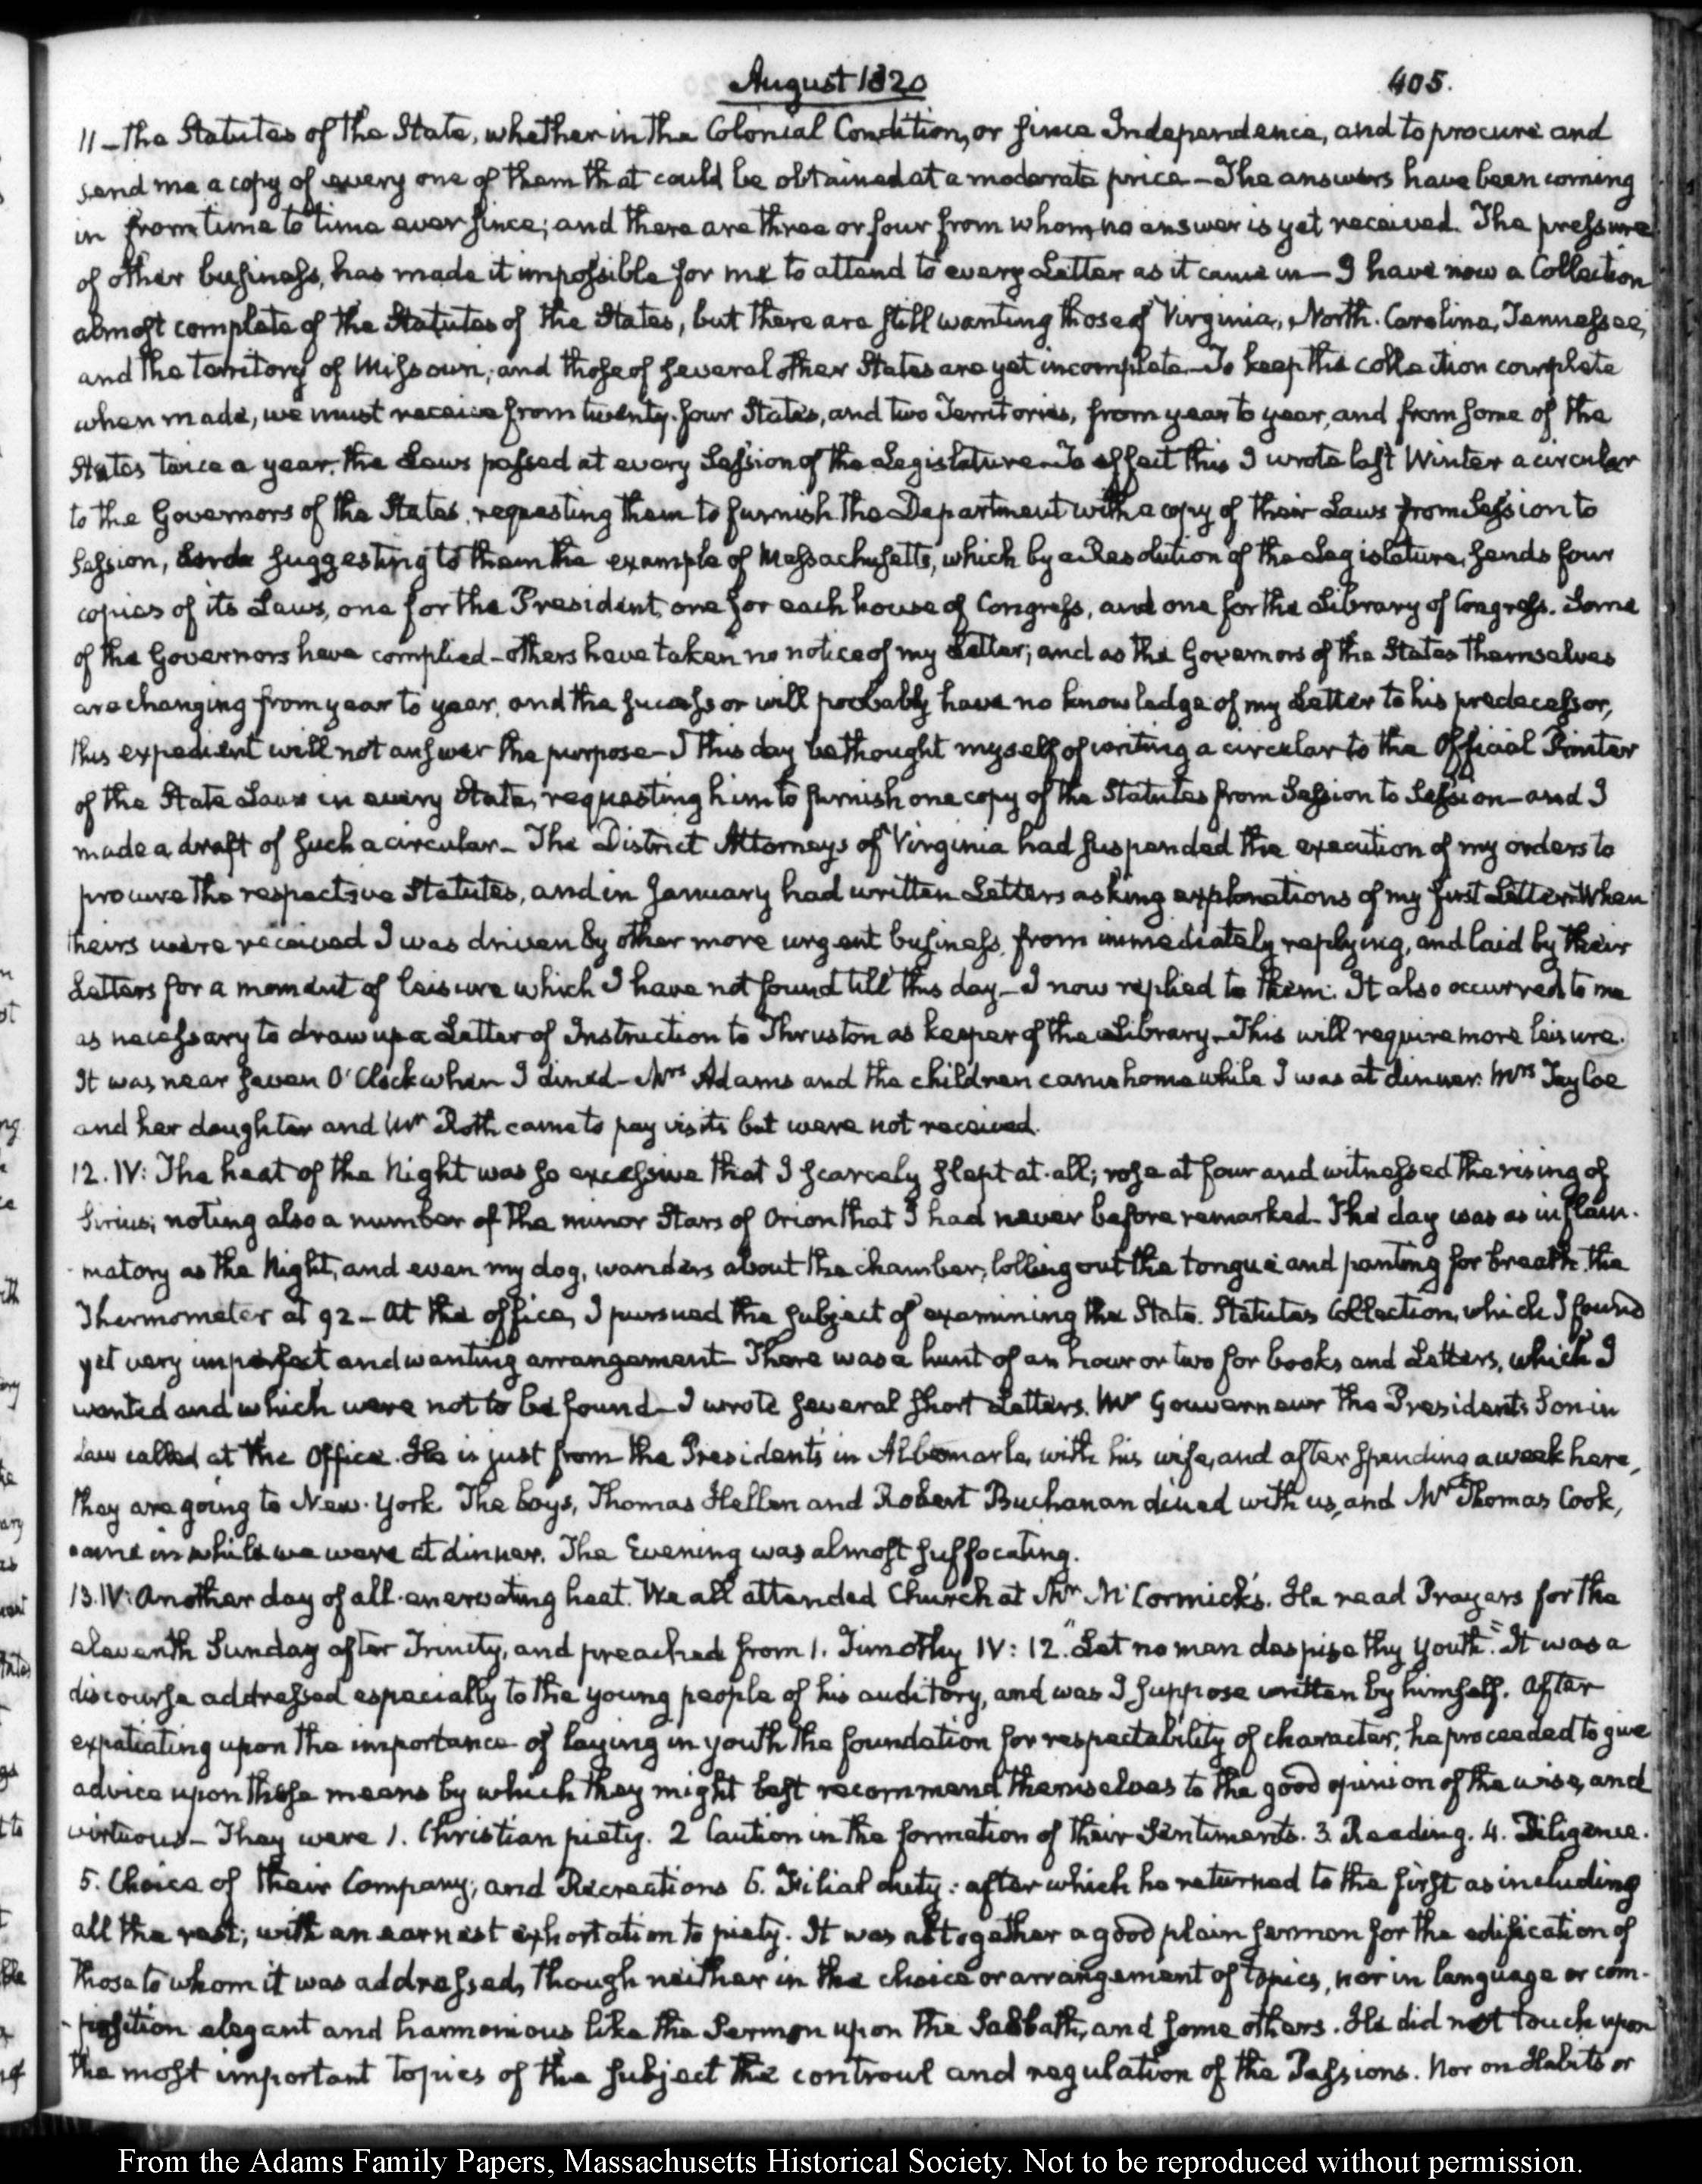 August 1820
405.
11 – the Statutes of the State, whether in the Colonial Condition, or since Independence, and to procure and
send me a copy of every one of them that could be obtained at a moderate price – The answers have been coming
in from time to time ever since; and there are three or four from whom no answer is yet received. The pressure
of other business, has made it impossible for me to attend to every Letter as it came in – I have now a Collection
almost complete of the Statutes of the States, but there are still wanting those of Virginia, North-Carolina, Tennessee,
and the territory of Missouri; and those of several other States are yet incomplete – To keep this collection complete
when made, we must receive from twenty-four States, and two Territories, from year to year, and from some of the
States twice a year, the Laws passed at every Session of the Legislature – To effect this I wrote last Winter a circular
to the Governors of the States, requesting them to furnish the Department with a copy of their Laws from Session to
Session, suggesting to them the example of Massachusetts, which by a Resolution of the Legislature, sends four
copies of its Laws, one for the President, one for each house of Congress, and one for the Library of Congress. Some
of the Governors have complied – others have taken no notice of my Letter; and as the Governors of the States themselves
are changing from year to year, and the successor will probably have no knowledge of my Letter to his predecessor,
this expedient will not answer the purpose – I this day bethought myself of writing a circular to the Official Printer
of the State Laws in every State, requesting him to furnish one copy of the Statutes from Session to Session – and I
made a draft of such a circular – The District Attorneys of Virginia had suspended the execution of my orders to
procure the respective Statutes, and in January had written Letters asking explanations of my first Letter. When
theirs were received I was driven by other more urgent business, from immediately replying, and laid by their
Letters for a moment of leisure which I have not found till this day – I now replied to them. It also occurred to me
as necessary to draw up a Letter of Instruction to Thruston as keeper of the Library – This will require more leisure.
It was near seven O'Clock when I dined – Mrs Adams and the children came home while I was at dinner. Mrs Tayloe
and her daughter and Mr Roth came to pay visits but were not received.
12. IV: The heat of the Night was so excessive that I scarcely slept at-all; rose at four and witnessed the rising of
Sirius; noting also a number of the minor Stars of Orion that I had never before remarked – The day was as inflam-
-matory as the Night, and even my dog, wanders about the chamber, lolling out the tongue and panting for breath. the
Thermometer at 92 – At the office, I pursued the subject of examining the State-Statutes Collection, which I found
yet very imperfect and wanting arrangement – There was a hunt of an hour or two for books and Letters, which I
wanted and which were not to be found – I wrote several short Letters. Mr Gouverneur the President's Son in
Law called at the Office. He is just from the President's in Albemarle, with his wife, and after spending a week here,
they are going to New-York. The boys, Thomas Hellen and Robert Buchanan dined with us, and Mr Thomas Cook,
came in while we were at dinner. The Evening was almost suffocating.
13. IV: Another day of all-enervating heat. We all attended Church at Mr McCormick's. He read Prayers for the
eleventh Sunday after Trinity, and preached from 1. Timothy IV: 12. "Let no man despise thy youth." It was a
discourse addressed especially to the young people of his auditory, and was I suppose written by himself. After
expatiating upon the importance of laying in youth the foundation for respectability of character, he proceeded to give
advice upon those means by which they might best recommend themselves to the good opinion of the wise, and
virtuous – They were 1. Christian piety. 2 Caution in the formation of their Sentiments. 3. Reading. 4. Diligence.
5. Choice of their Company; and Recreations 6. Filial duty: after which he returned to the first as including
all the rest; with an earnest exhortation to piety. It was altogether a good plain sermon for the edification of
those to whom it was addressed, though neither in the choice or arrangement of topics, nor in language or com-
-position elegant and harmonious like the Sermon upon the Sabbath, and some others. He did not touch upon
the most important topics of the subject the controul and regulation of the Passions. Nor on Habits or
From the Adams Family Papers, Massachusetts Historical Society. Not to be reproduced without permission.